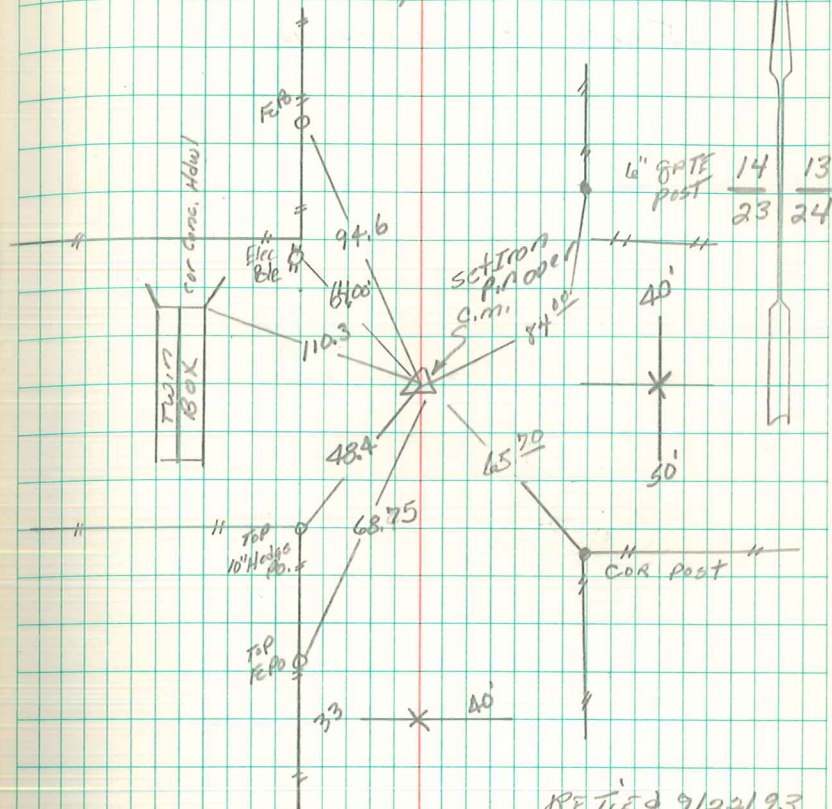 FePo
Cor Conc. Hdwl
6" GATE
post
14
23
13
24
94.6
Elec
Pole
Set Iron
Pin over
C.M.
40'
84.00
110.3
TWIN
BOX
48.4
65.70
50'
68.75
Top
10" Hedge
Po.
COR POST
Top
FePo
33
40'
RETIED 9/23/93